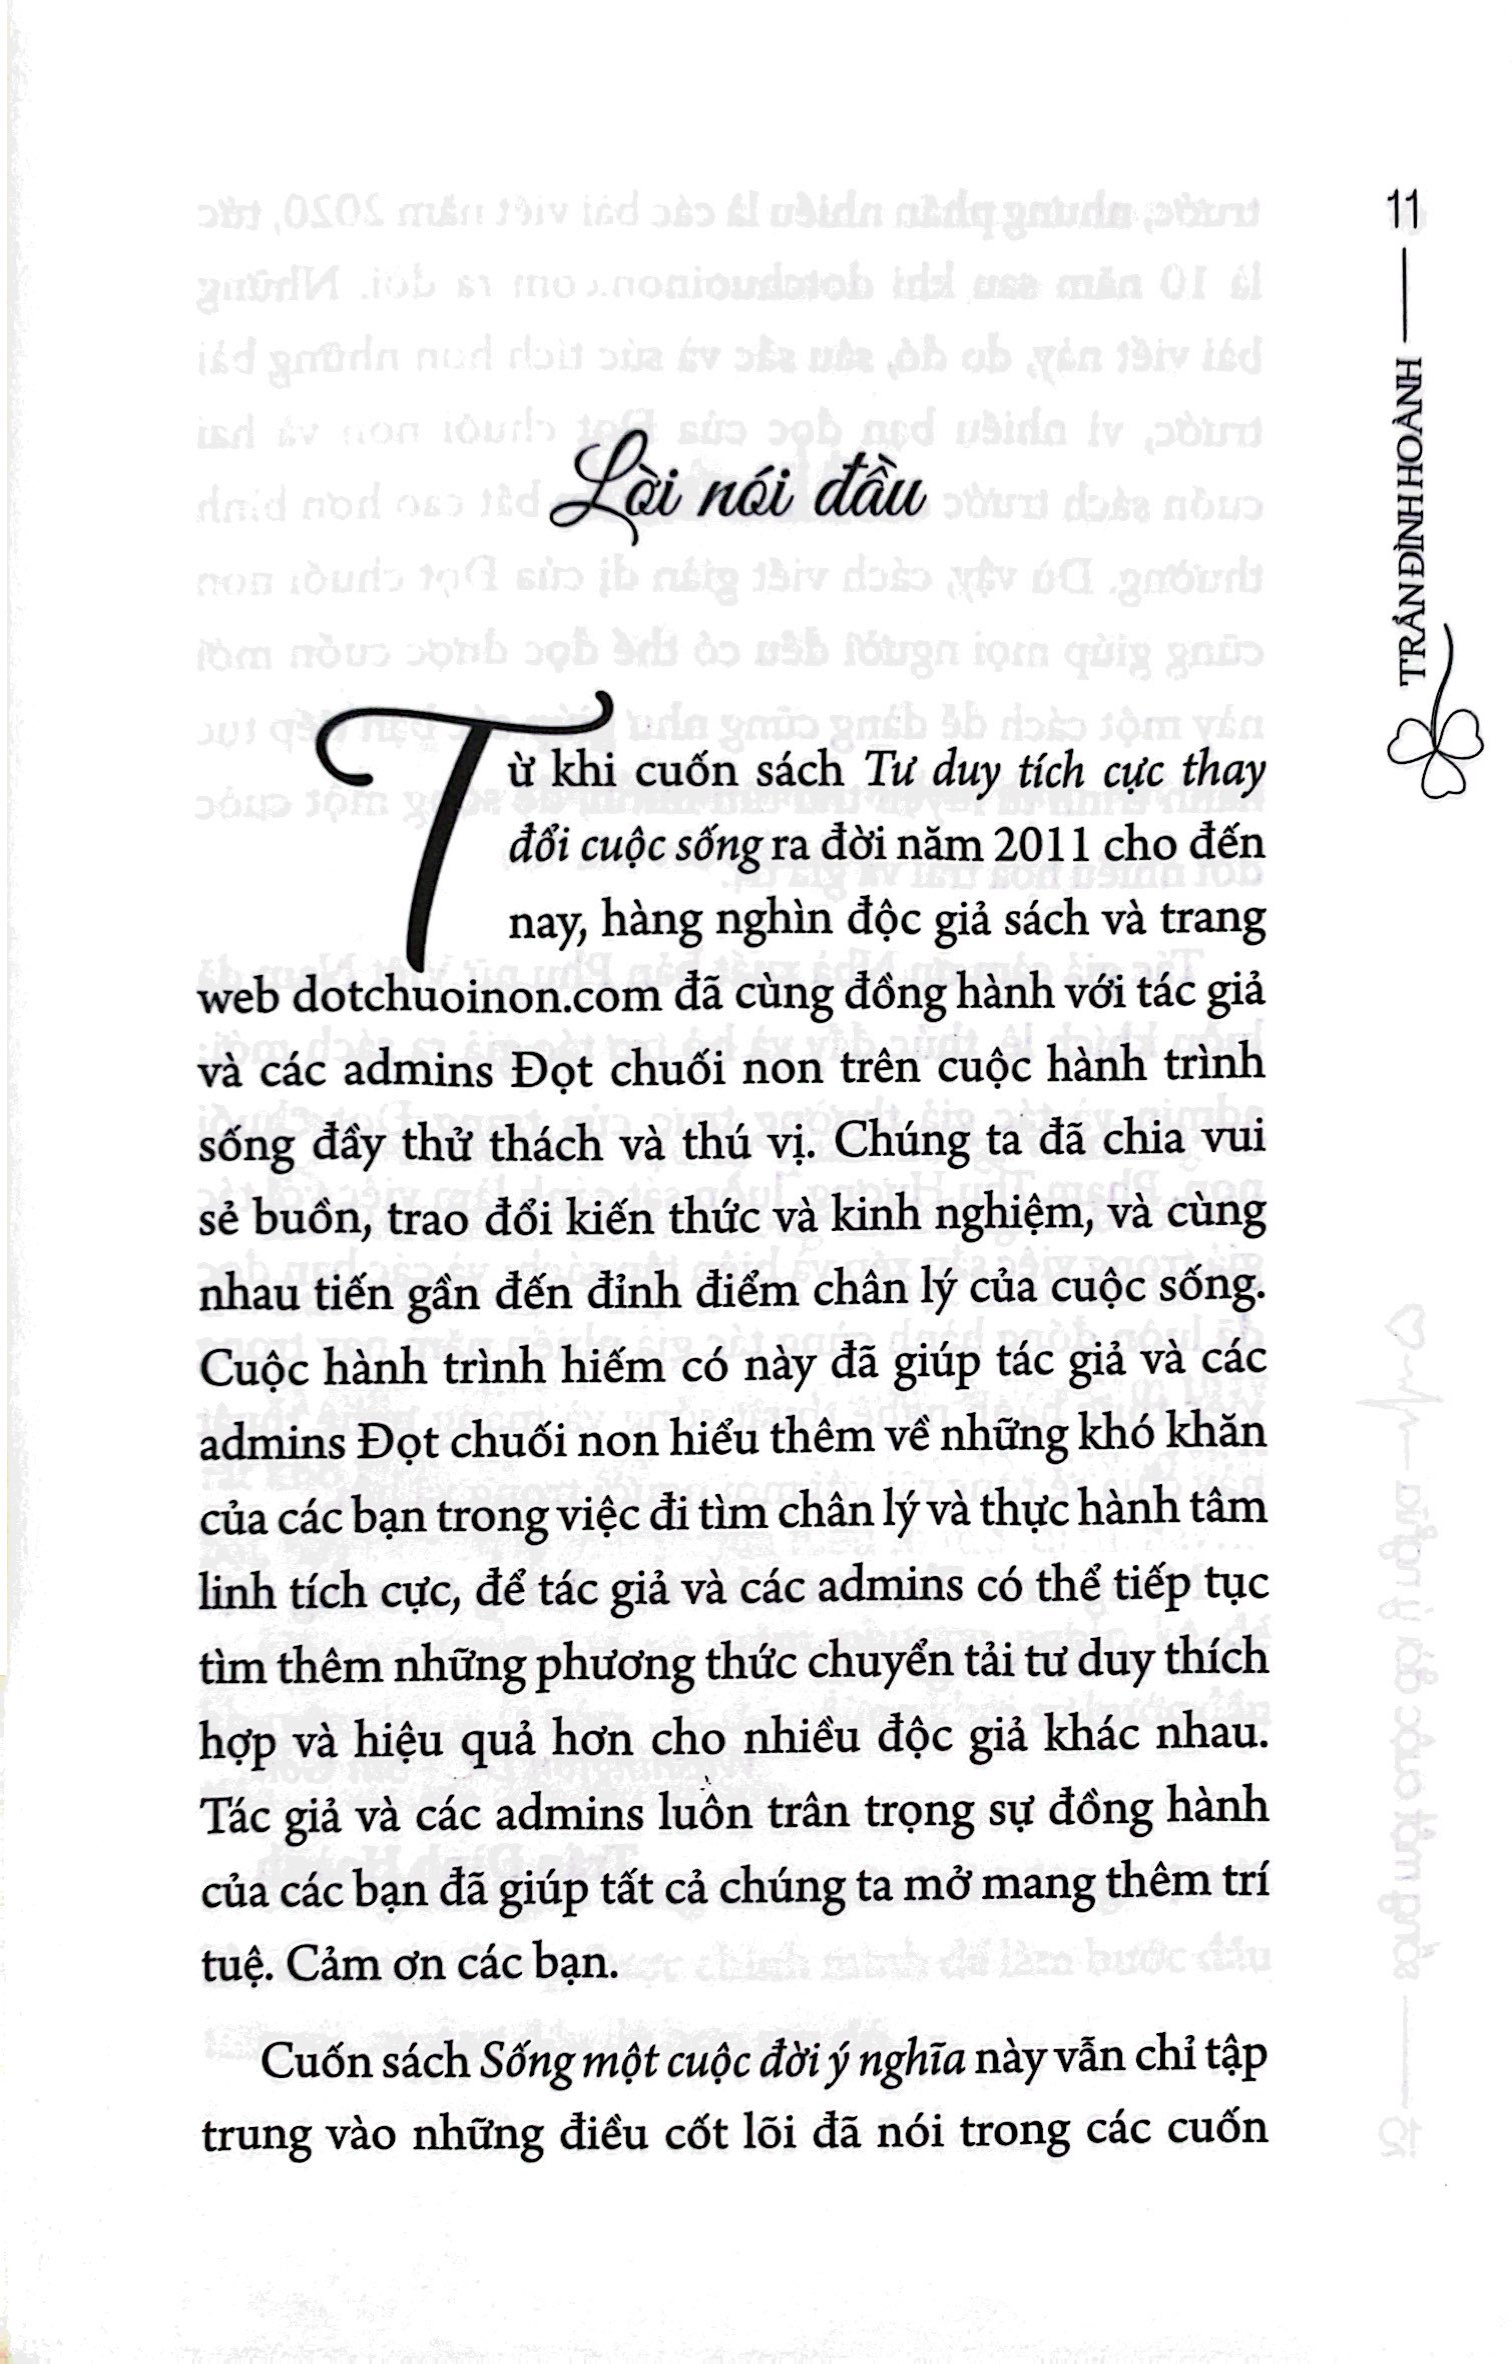 11
TRẦN ĐÌNH HOÀNH
Lời nói đầu
Từ khi cuốn sách Tư duy tích cực thay
đổi cuộc sống ra đời năm 2011 cho đến
nay, hàng nghìn độc giả sách và trang
web dotchuoinon.com đã cùng đồng hành với tác giả
và các admins Đọt chuối non trên cuộc hành trình
sống đầy thử thách và thú vị. Chúng ta đã chia vui
sẻ buồn, trao đổi kiến thức và kinh nghiệm, và cùng
nhau tiến gần đến đỉnh điểm chân lý của cuộc sống.
Cuộc hành trình hiếm có này đã giúp tác giả và các
admins Đọt chuối non hiểu thêm về những khó khăn
của các bạn trong việc đi tìm chân lý và thực hành tâm
linh tích cực, để tác giả và các admins có thể tiếp tục
tìm thêm những phương thức chuyển tải tư duy thích
hợp và hiệu quả hơn cho nhiều độc giả khác nhau.
Tác giả và các admins luôn trân trọng sự đồng hành
của các bạn đã giúp tất cả chúng ta mở mang thêm trí
tuệ. Cảm ơn các bạn.
Cuốn sách Sống một cuộc đời ý nghĩa này vẫn chỉ tập
trung vào những điều cốt lõi đã nói trong các cuốn